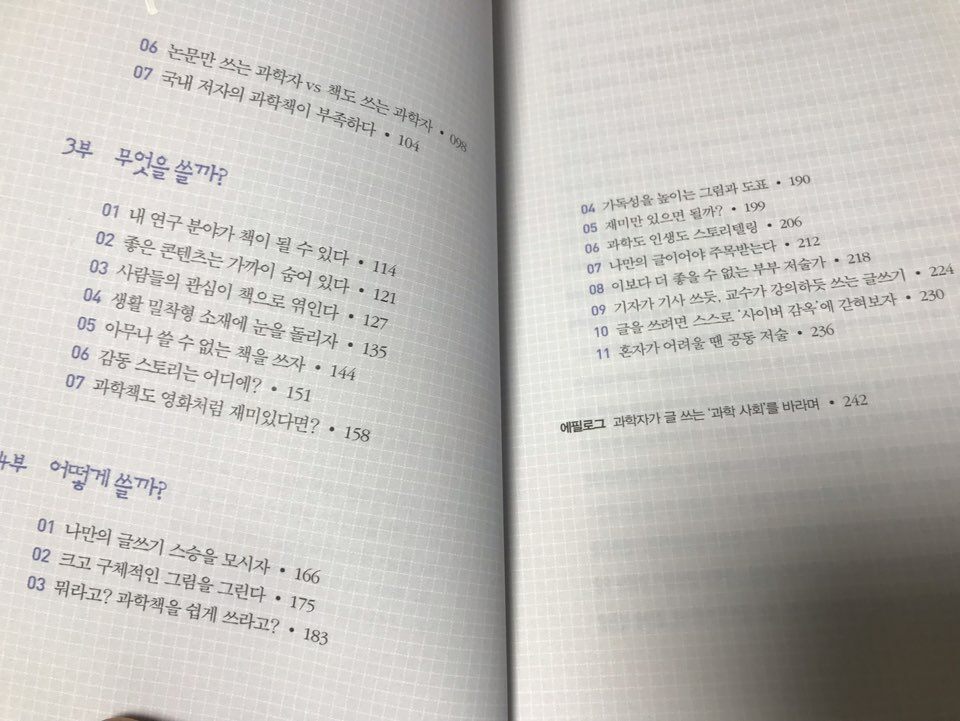 06 논문만 쓰는 과학자 vs 책도 쓰는 과학자 • 098
07 국내 저자의 과학책이 부족하다 • 104
3부 무엇을 쓸까?
01 내 연구 분야가 책이 될 수 있다 • 114
02 좋은 콘텐츠는 가까이 숨어 있다 • 121
03 사람들의 관심이 책으로 엮인다 • 127
04 생활 밀착형 소재에 눈을 돌리자 • 135
05 아무나 쓸 수 없는 책을 쓰자 • 144
06 감동 스토리는 어디에? • 151
07 과학책도 영화처럼 재미있다면? • 158
4부 어떻게 쓸까?
01 나만의 글쓰기 스승을 모시자 • 166
02 크고 구체적인 그림을 그린다 • 175
03 뭐라고? 과학책을 쉽게 쓰라고? • 183
04 가독성을 높이는 그림과 도표 • 190
05 재미만 있으면 될까? • 199
06 과학도 인생도 스토리텔링 • 206
07 나만의 글이어야 주목받는다 • 212
08 이보다 더 좋을 수 없는 부부 저술가 • 218
09 기자가 기사 쓰듯, 교수가 강의하듯 쓰는 글쓰기 • 224
10 글을 쓰려면 스스로 '사이버 감옥'에 갇혀보자 • 230
11 혼자가 어려울 땐 공동 저술 • 236
에필로그 과학자가 글 쓰는 '과학 사회'를 바라며 • 242